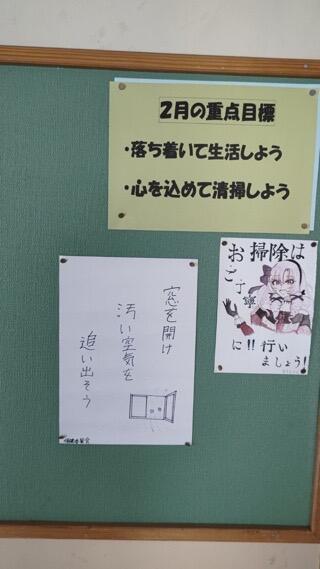 2月の重点目標
・落ち着いて生活しよう
・心を込めて清掃しよう
お掃除は
ご丁寧
に!!行い
ましょう!
窓を開け
汚い空気を
追い出そう